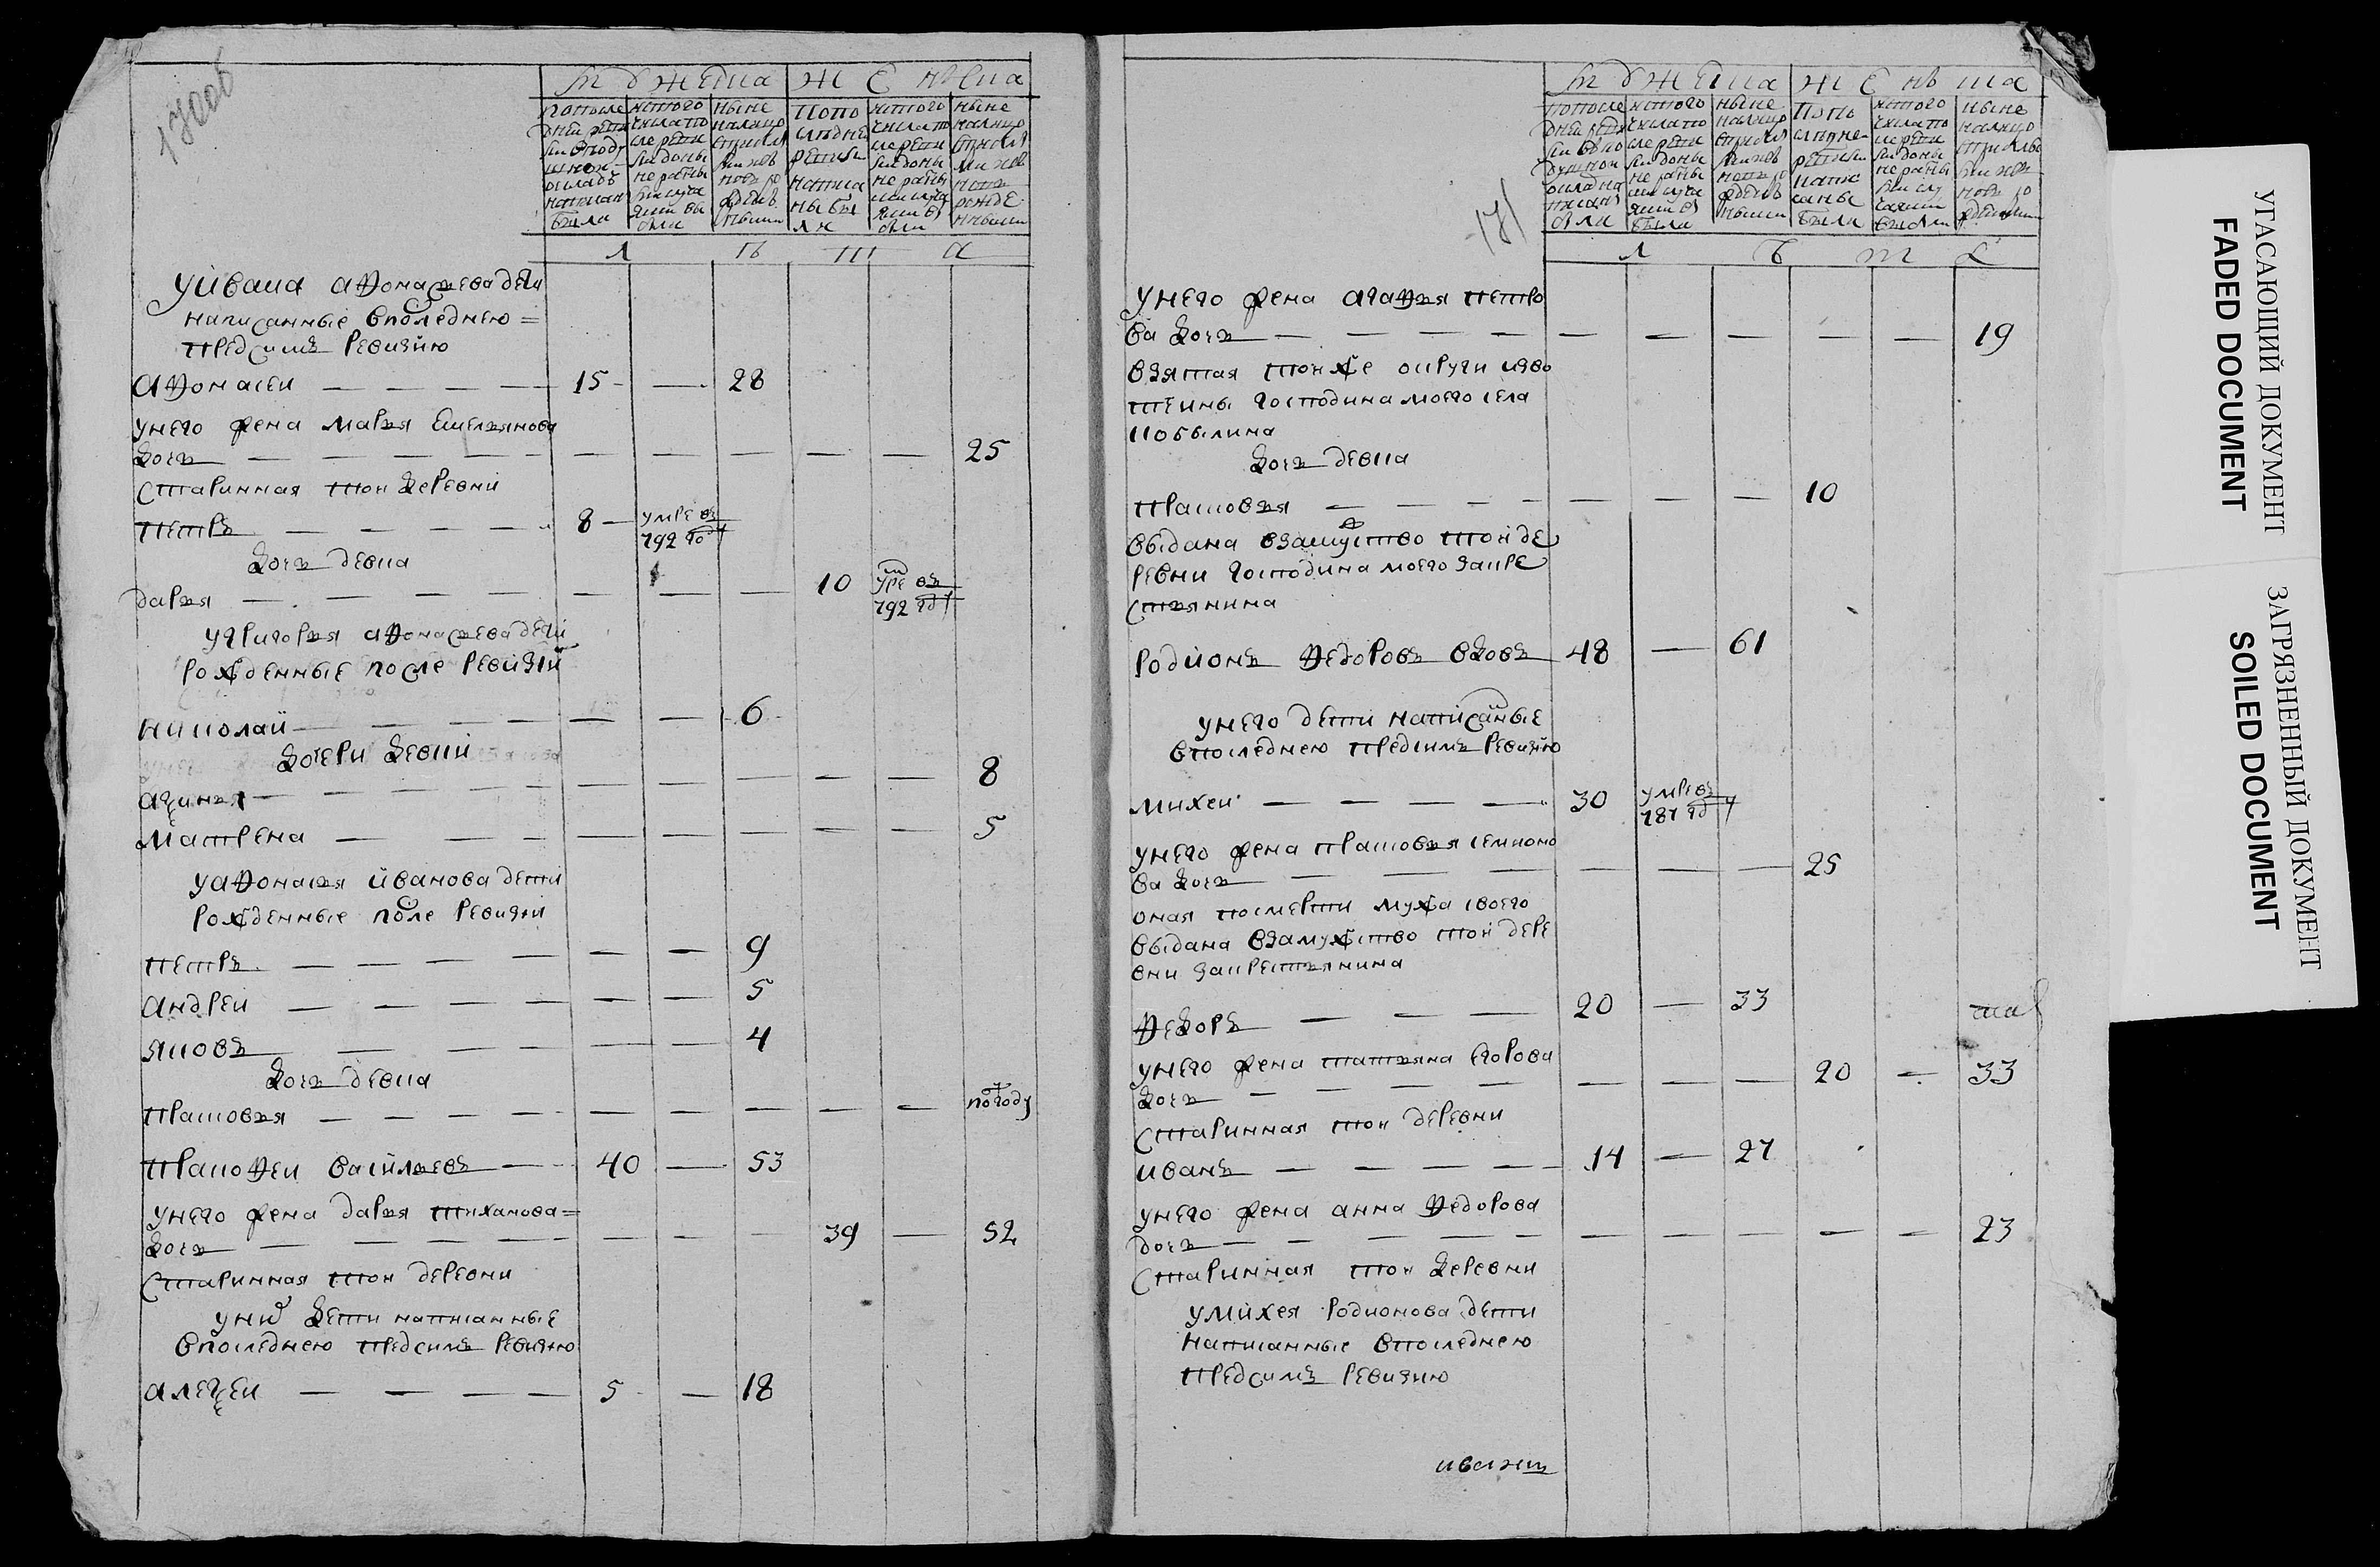 170об
мужеска женска
по последней ревизии в подушной оклад написаны были
ис того числа после ревизии до ныне разными случаями выбыли
ныне на лицо с прибылыми и вновь рожденными
по последней ревизии написаны были
ис того числа после ревизии до ныне разными случаями выбыли
ныне на лицо с прибылыми и вновь рожденными
л ѣ т а
у ивана афонасьева дети
написанные в последнею =
пред симъ ревизию
афонасеи 15 28
у него жена марья емельянова
дочь 25
старинная той деревни
петръ 8 умре въ 792 году
дочь девка
дарья 10 умре въ 792 году
у григорья афонасьева дети
рожденные после ревизии
николай 6
дочери девки
аксинья 8
матрена 5
у афонасья иванова дети
рожденные после ревизии
петръ 9
андреи 5
яковъ 4
дочь девка
прасковья полгоду
пракофеи васильевъ 40 53
у него жена дарья тиханова =
дочь 39 52
старинная той деревни
у них дети написанные
в последнею пред симъ ревизию
алексеи 5 18
171
мужеска женска
по последней ревизии в подушной оклад написаны были
ис того числа после ревизии до ныне разными случаями выбыли
ныне на лицо с прибылыми и вновь рожденными
по последне ревизии написаны были
ис того числа после ревизии до ныне разными случаями выбыли
ныне на лицо с прибылыми и вновь рожденными
л ѣ т а
у него жена агафья петро
ва дочь 19
взятая той же округи из во
тчины господина моего села
кобылина
дочь девка
прасковья 10
выдана в замужство той де
ревни господина моего за кре
стьянина
родионъ федоровъ вдовъ 48 61
у него дети написаные
в последнею пред симъ ревизию
михеи 30 умре въ 787 году
у него жена прасковья семионо
ва дочь 25
оная по смерти мужа своего
выдана в замужство той дере
вни за крестьянина
федоръ 20 33
у него жена татьяна егорова
дочь 20 33
старинная той деревни
иванъ 14 27
у него жена анна федорова
дочь 23
старинная той деревни
у михея родионова дети
написанные в последнею
пред симъ ревизию
УГАСАЮЩИЙ ДОКУМЕНТ
FADED DOCUMENT
ЗАГРЯЗНЕННЫЙ ДОКУМЕНТ
SOILED DOCUMENT